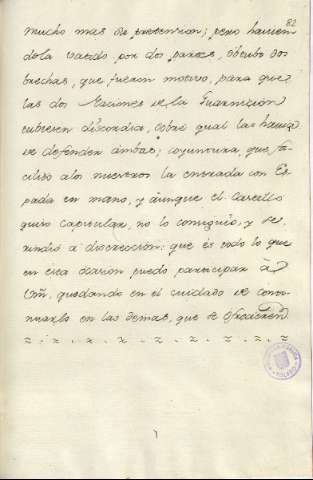 82
mucho mas de pretension; pero havien
dola batido por dos partes, obtubo dos
brechas, que fueron motivo, para que
las dos Naciones de la Guarnizion
tubiesen discordia, sobre qual las havia
de defender ambas; coyuntura, que fa
cilito a los nuestros la entrada con Es
pada en mano, y aunque el Castillo
quiso capitular, no lo consiguió, y se
rindió a discrecion: que es todo lo que
en esta ocasion puedo participar à
Vm̃, quedando en el cuidado de conti
nuarlo en las demas, que se ofrecieren